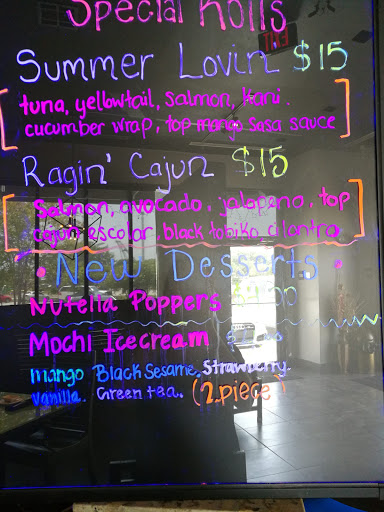 Special Rolls
Summer Lovin $15
tuna, yellowtail, salmon, kani.
cucumber wrap, top mango sasa sauce
Ragin' Cajun $15
Salmon, avocado, jalapeno, top
cajun escolar, black tobiko, cilantro
• New Desserts •
Nutella Poppers
Mochi Icecream
mango Black Sesame, Strawberry.
vanilla. Green tea. (2 piece)